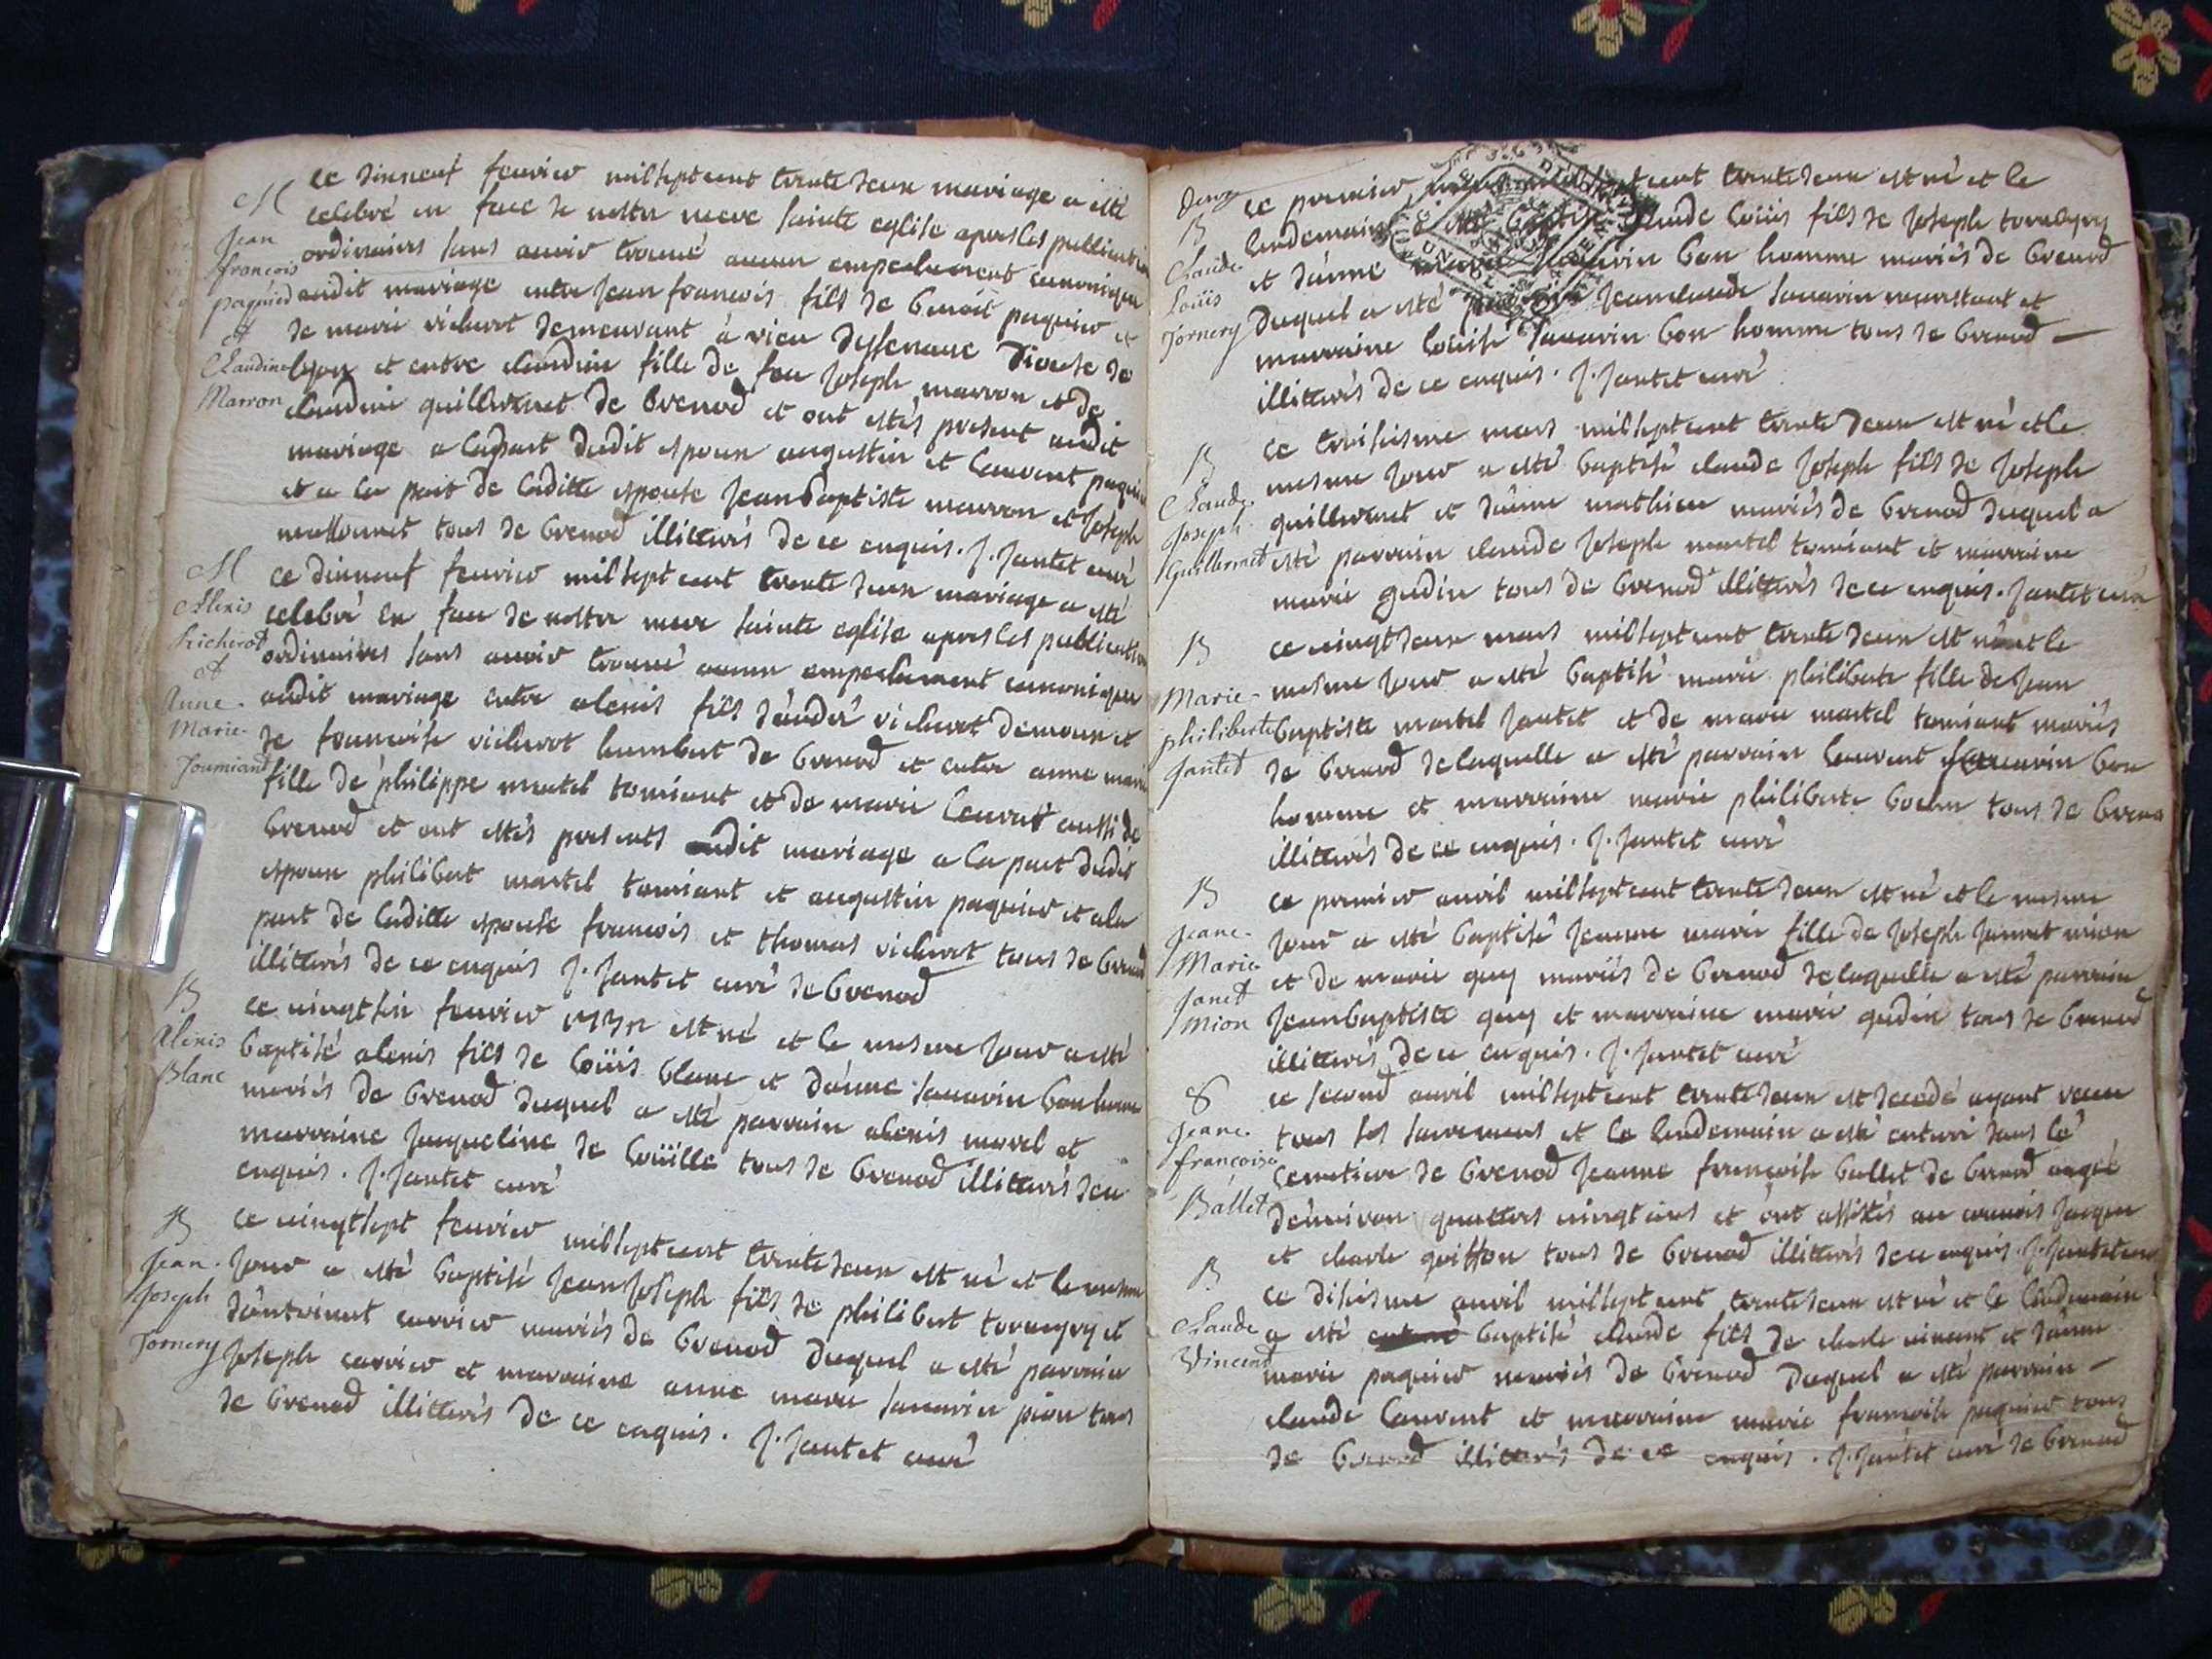 M
Jean
francois
paquier
et
Claudine
Marron
ce dixneuf feurier mil sept cent trente deux mariage a esté
celebré en face de nostre mere sainte eglise apres les publications
ordinaires sans auoir trouué aucun empeschement canonique
audit mariage entre Jean francois fils de benoit paquier et
de marie vicherot demeurant à vieu dissenaue diocese de
lyon et entre claudine fille de feu Joseph marron et de
claudine guillermet de brenod et ont estés present audit
mariage a la part dudit epoux augustin et laurent paquier
et a la part de laditte epouse Jean baptiste marron et Joseph
tous de brenod illitterés de ce enquis. J. Jantet curé
M
Alexis
Vicherot
et
Anne
Marie
Toumiant
ce dixneuf feurier mil sept cent trente deux mariage a esté
celebré en face de nostre mere sainte eglise apres les publications
ordinaires sans auoir trouué aucun empeschement canonique
audit mariage entre alexis fils d'andré vicherot et
de francoise vicherot humbert de brenod et entre anne marie
fille de philippe martel tomiant et de marie laurent aussi de
brenod et ont estés presents audit mariage a la part dudit
epoux philibert martel tomiant et augustin paquier et a la
part de laditte epouse francois et thomas vicherot tous de brenod
illitterés de ce enquis J. Jantet curé de brenod
B
Alexis
Blanc
ce vingt six feurier 1732 est né et le mesme jour a esté
baptisé alexis fils de loüis blanc et d'anne sauarin bonhomme
mariés de brenod duquel a esté parrain alexis morel et
marraine Jacqueline de loüille tous de brenod illitterés de ce
enquis. J. Jantet curé
B
Jean
Joseph
Tornery
ce vingt sept feurier mil sept cent trente deux est né et le mesme
jour a esté baptisé Jean Joseph fils de philibert et
d'antoinet carrier mariés de brenod duquel a esté parrain
Joseph carrier et marraine anne marie sauarin pion tous
de brenod illitterés de ce enquis. J. Jantet curé
B
Claude
Loüis
Tornery
ce premier mars mil sept cent trente deux est né et le
lendemain a esté baptisé Claude loüis fils de Joseph
et d'anne marie sauarin bon homme mariés de brenod
duquel a esté parrain Jean claude sauarin et
marraine loüise sauarin bon homme tous de brenod
illitterés de ce enquis. J. Jantet curé
B
Claude
Joseph
Guillermet
ce troisiesme mars mil sept cent trente deux est né et le
mesme jour a esté baptisé claude Joseph fils de Joseph
guillermet et d'anne mathieu mariés de brenod duquel a
esté parrain claude Joseph martel tomiant et marraine
marie gudin tous de brenod illitterés de ce enquis. Jantet curé
B
Marie
philiberte
Jantet
ce vingt deux mars mil sept cent trente deux est né et le
mesme jour a esté baptisé marie philiberte fille de Jean
baptiste martel Jantet et de marie martel tomiant mariés
de brenod de laquelle a esté parrain laurent sauarin bon
homme et marraine marie philiberte tous de brenod
illitterés de ce enquis. J. Jantet curé
B
Jeane
Marie
Janet
Mion
ce premier auril mil sept cent trente deux est né et le mesme
jour a esté baptisé Jeanne marie fille de Joseph Jannet mion
et de marie guy mariés de brenod de laquelle a esté parrain
Jean baptiste guy et marraine marie gudin tous de brenod
illitterés de ce enquis. J. Jantet curé
S
Jeane
françoise
Ballet
ce second auril mil sept cent trente deux est decedé ayant receu
tous ses sacremens et le lendemain a esté enterré dans le
cemetiere de brenod Jeanne francoise ballet de brenod aagée
d'enuiron quattres vingt ans et ont assistés au conuois Jacque
et charle goiffon tous de brenod illitterés de ce enquis. J. Jantet curé
B
Claude
Vincent
ce disiesme auril mil sept cent trente deux est né et le lendemain
a esté baptisé claude fils de charle vincent et d'anne
marie paquier mariés de brenod duquel a esté parrain
claude laurent et marraine marie francoise paquier tous
de brenod illitterés de ce enquis. J. Jantet curé de brenod